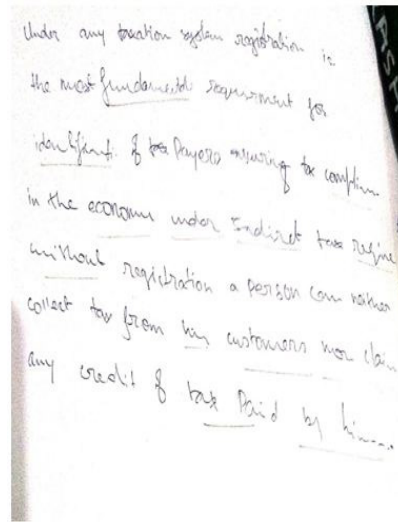 Under any taxation system registration is
the most fundamental requirment for
identificati. of tax Payers ensuring tax complian
in the economu under Indirect taxe regine
without registration a person can neither
collect tax from his customers nor claim
any credit of taxe Paid by him...